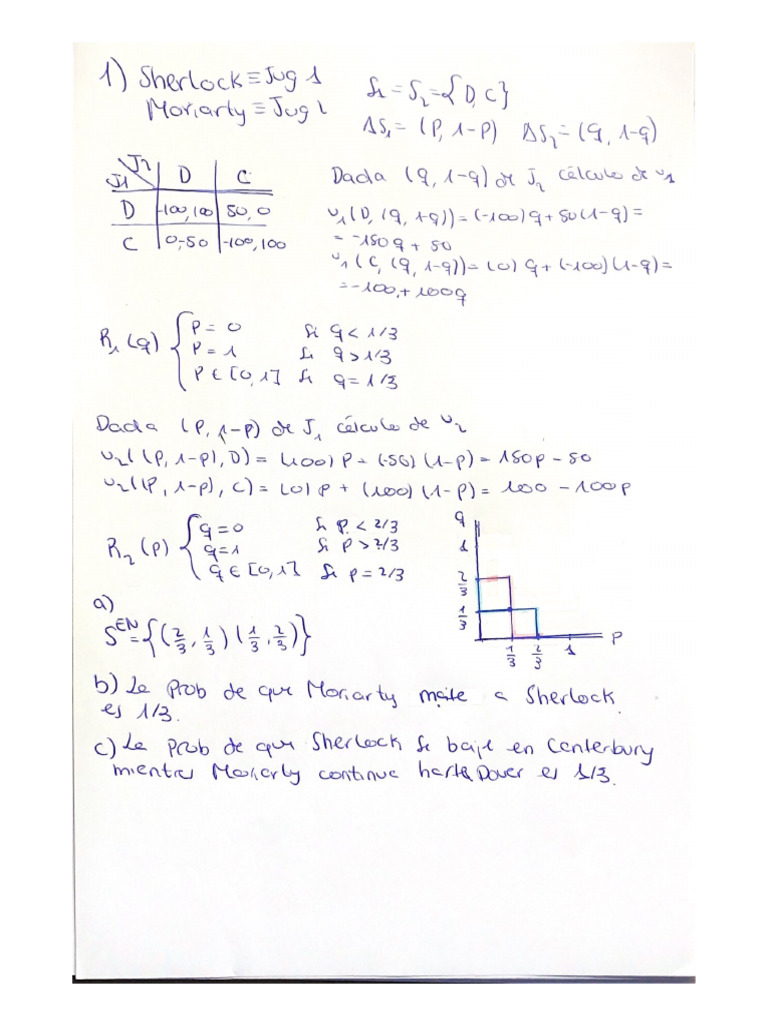 1) Sherlock ≡ Jug 1
Moriarty ≡ Jug 2
S1 = S2 = {D, C}
ΔS1 = (P, 1-P) ΔS2 = (q, 1-q)
J1 J2 D C
D -100,100 50,0
C 0,-50 -100,100
Dada (q, 1-q) de J2 cálculo de u1
u1(D, (q, 1-q)) = (-100)q + 50(1-q) =
= -150q + 50
u1(C, (q, 1-q)) = (0)q + (-100)(1-q) =
= -100 + 100q
R1(q) { P = 0 si q < 1/3
P = 1 si q > 1/3
P ∈ [0,1] si q = 1/3
Dada (P, 1-P) de J1 cálculo de u2
u2((P, 1-P), D) = (100)P + (-50)(1-P) = 150P - 50
u2(P, 1-P), C) = (0)P + (100)(1-P) = 100 - 100P
R2(P) { q = 0 si P < 2/3
q = 1 si P > 2/3
q ∈ [0,1] si P = 2/3
q
1
2/3
1/3
1/3 2/3 1 P
a)
S^EN = {(2/3, 1/3) (1/3, 2/3)}
b) La Prob de que Moriarty mate a Sherlock
es 1/3.
c) La Prob de que Sherlock se baje en Canterbury
mientras Moriarty continue hasta Dover es 1/3.